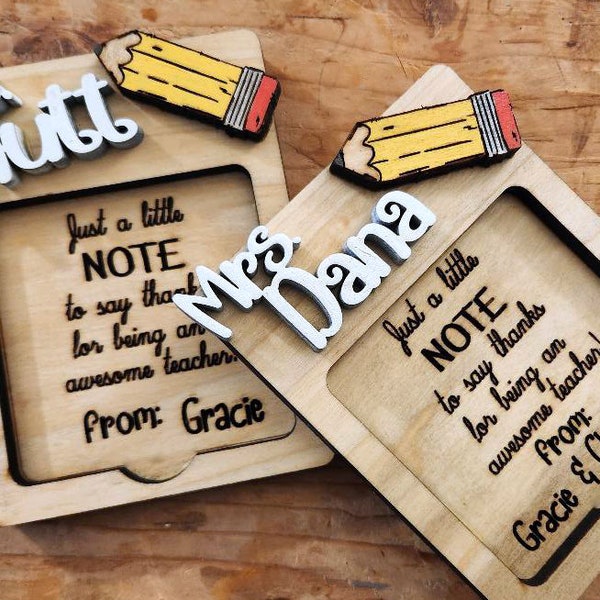 Just a little
NOTE
to say
for being an
awesome teacher!
From: Gracie
Mrs.
Dana
Just a little
NOTE
to say thanks
for being an
awesome teacher!
From:
Gracie &